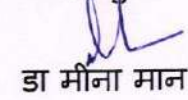 डा मीना मान